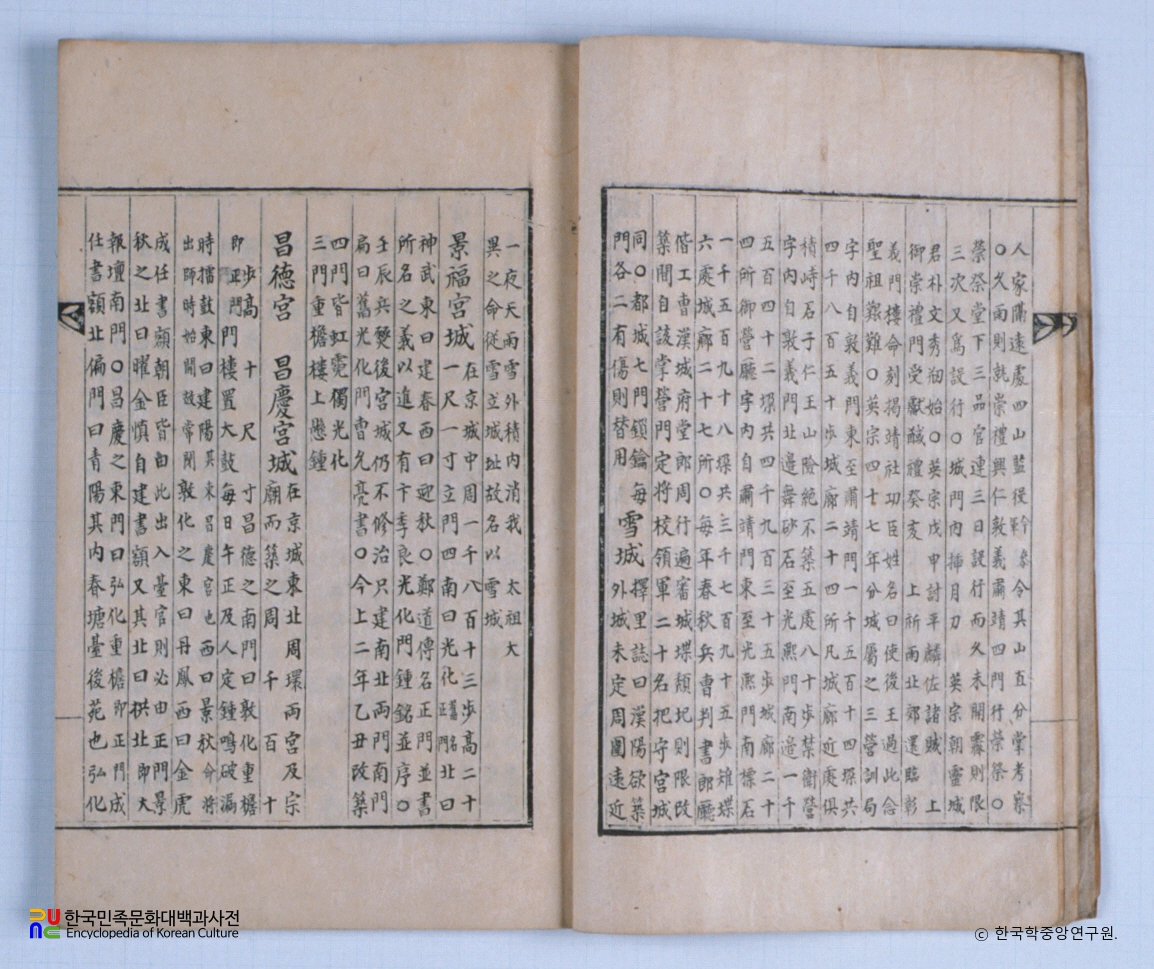 人家隔遠處四山監役幹參令其山直分掌考察
〇久雨則就崇禮興仁敦義肅靖四門行禜祭〇
禜祭堂下三品官連三日設行而久未開霽則限
三次又爲設行〇城門內揷月刀 英宗朝靈城
君朴文秀刱始〇英宗戊申討平麟佐諸賊 上
御崇禮門受獻馘禮癸亥 上祈雨北郊還臨彰
義門樓命刻揭靖社功臣姓名曰使後王過此念
聖祖艱難〇英宗四十七年分城屬之三營訓局
字內自敦義門東至肅靖門一千五百十四堞共
四千八百五十步城廊二十四所凡城廊近處俱
積峙石子仁王山險絶不築五處後八十步禁衛營
字內自敦義門北邊舞砂石至光熙門南邊一千
五百四十二堞共四千九百三十五步城廊二十
四所御營廳字內自肅靖門東至光熙門南標石
一千五百九十八堞共三千七百九十五步雉堞
六處城廊二十七所〇每年春秋兵曹判書郎廳
偕工曹漢城府堂郎周行遍審城堞頹圮則限改
築閘自該掌營門定將校領軍二十名把守宮城
同〇都城七門鎖鑰每
門各二有傷則替用
雪城
擇里誌曰漢陽欲築
外城未定周圍遠近
一夜天雨雪外積內消我 太祖大
異之命從雪立城址故名以雪城
景福宮城
在京城中周一千八百十三步高二十
一尺一寸立門四南曰光化舊名正門北曰
神武東曰建春西曰迎秋〇鄭道傳名正門並書
所名之義以進又有卞季良光化門鍾銘並序〇
壬辰兵燹後宮城仍不修治只建南北兩門南門
扁曰舊光化門曹允亮書〇今上二年乙丑改築
四門皆虹霓獨光化
三門重檐樓上懸鍾
昌德宮 昌慶宮城
在京城東北周環兩宮及宗
廟而築之周 千 百 十
步高 十 尺 寸昌德之南門曰敦化重檐
即正門門樓置大鼓每日午正及人定鍾鳴破漏
時擂鼓東曰建陽其東昌慶宮也西曰景秋命將
出師時始開故常閉敦化之東曰丹鳳西曰金虎
成任書額朝臣皆由此出入臺官則必由正門景
秋之北曰曜金愼自建書額又其北曰拱北即大
報壇南門〇昌慶之東門曰弘化重檐即正門成
任書額北偏門曰靑陽其內春塘臺後苑也弘化
한국민족문화대백과사전
Encyclopedia of Korean Culture
ⓒ 한국학중앙연구원.